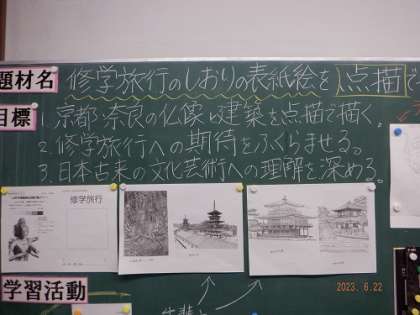 題材名 修学旅行のしおりの表紙絵を点描で
目標 1.京都・奈良の仏像や建築を点描で描く。
2.修学旅行への期待をふくらませる。
3.日本古来の文化芸術への理解を深める。
修学旅行
2023.6.22
学習活動